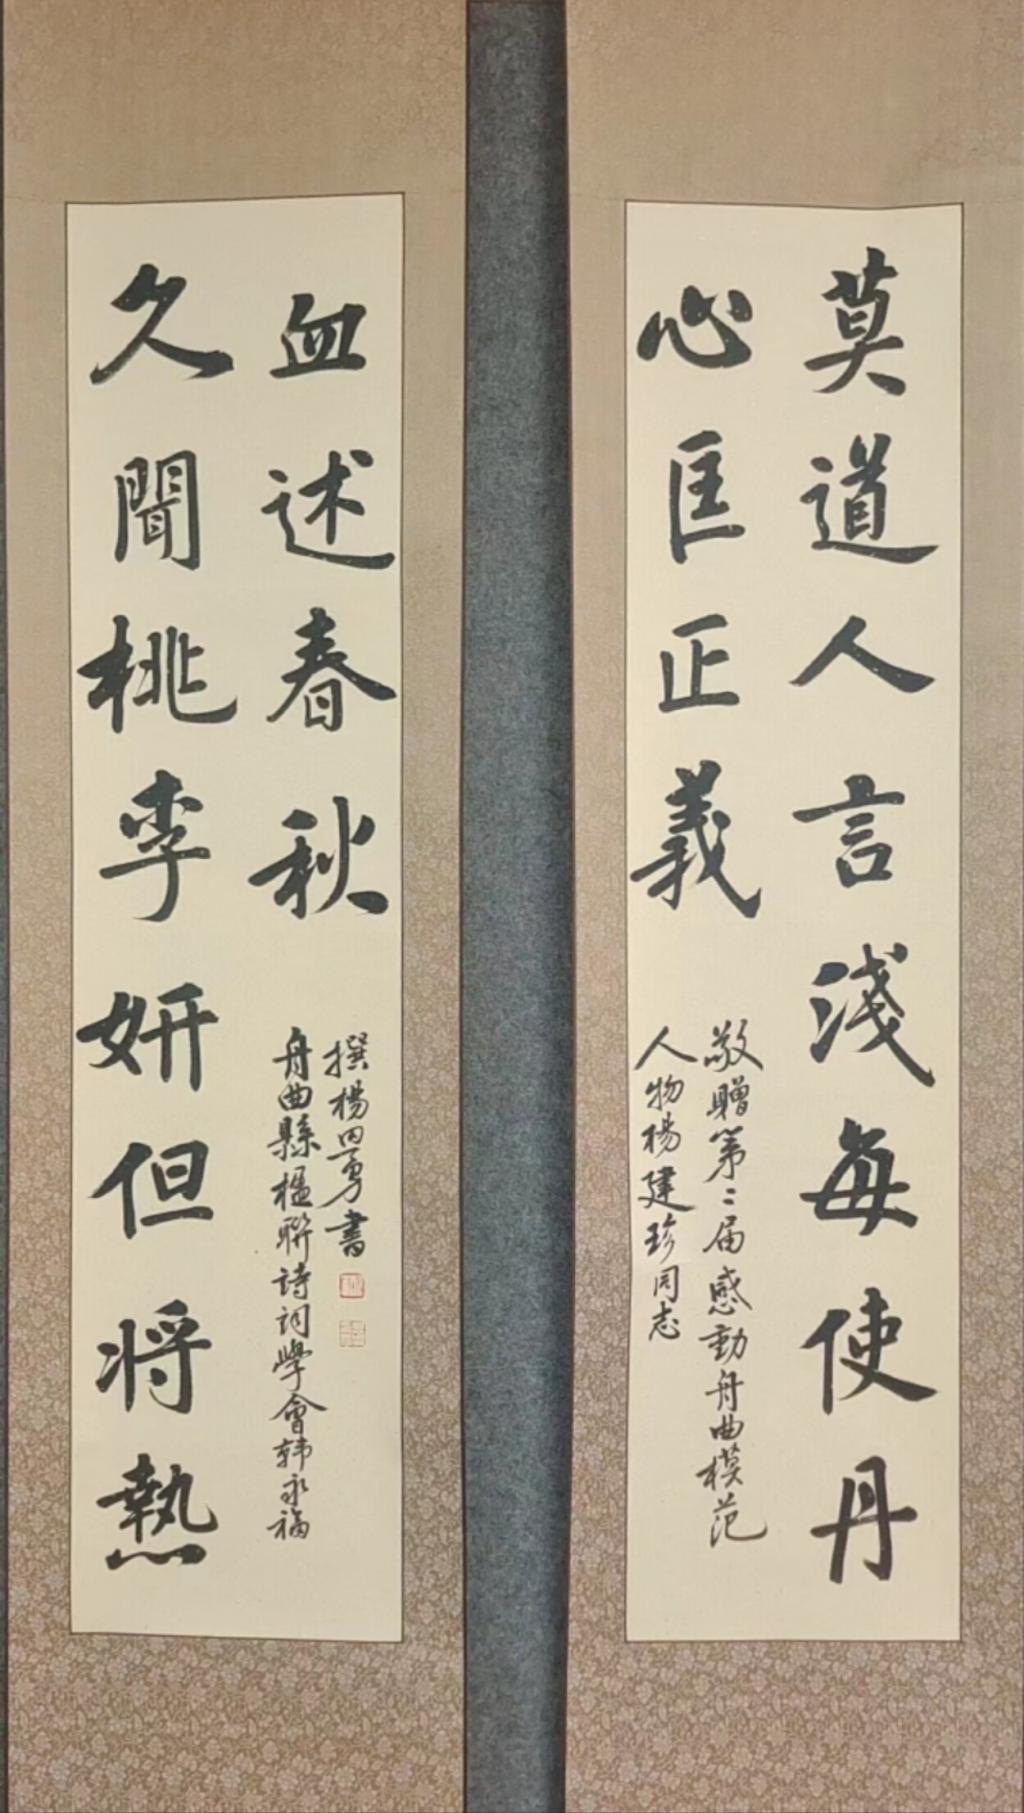 莫道人言淺每使丹
心匡正義
敬贈第二届感動舟曲模范
人物楊建珍同志
久聞桃李妍但将熱
血述春秋
舟曲縣楹聯詩詞學會韩永福
撰楊勇書